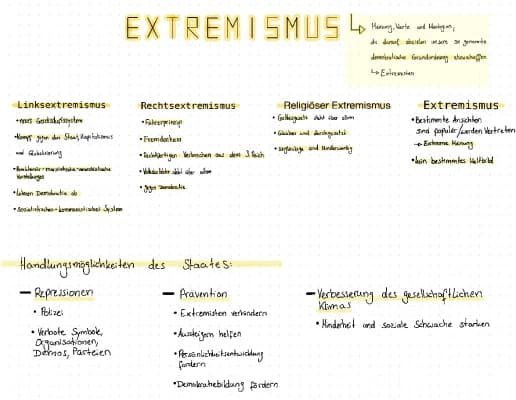 EXTREMISMUS
Meinung, Werte und Ideologien,
die darauf abzielen unsere so genannte
demokratische Grundordnung abzuschaffen
↳ Extremisten
Linksextremismus
• neues Gesellschaftssystem
• Kampf gegen den Staat, Kapitalismus
und Globalisierung
Vorstellungen
• lehnen Demokratie ab
• Sozialistisches-kommunistisches System
Rechtsextremismus
• Führerprinzip
• Fremdenhass
• Rechtfertigen Verbrechen aus dem 3. Reich
• steht über allem
• gegen Demokratie
Religiöser Extremismus
• Gottesgesetz steht über allem
• Glauben wird durchgesetzt
• und
Extremismus
• Bestimmte Ansichten
sind populär/werden vertreten
→ Extreme Meinung
• kein bestimmtes Weltbild
Handlungsmöglichkeiten des Staates:
– Repressionen
• Polizei
• Verbote Symbole,
Organisationen,
Demos, Parteien
– Prävention
• Extremisten verhindern
• Aussteigern helfen
• Persönlichkeitsentwicklung
fördern
• Demokratiebildung fördern
– Verbesserung des gesellschaftlichen
Klimas
• Minderheit und soziale Schwache stärken